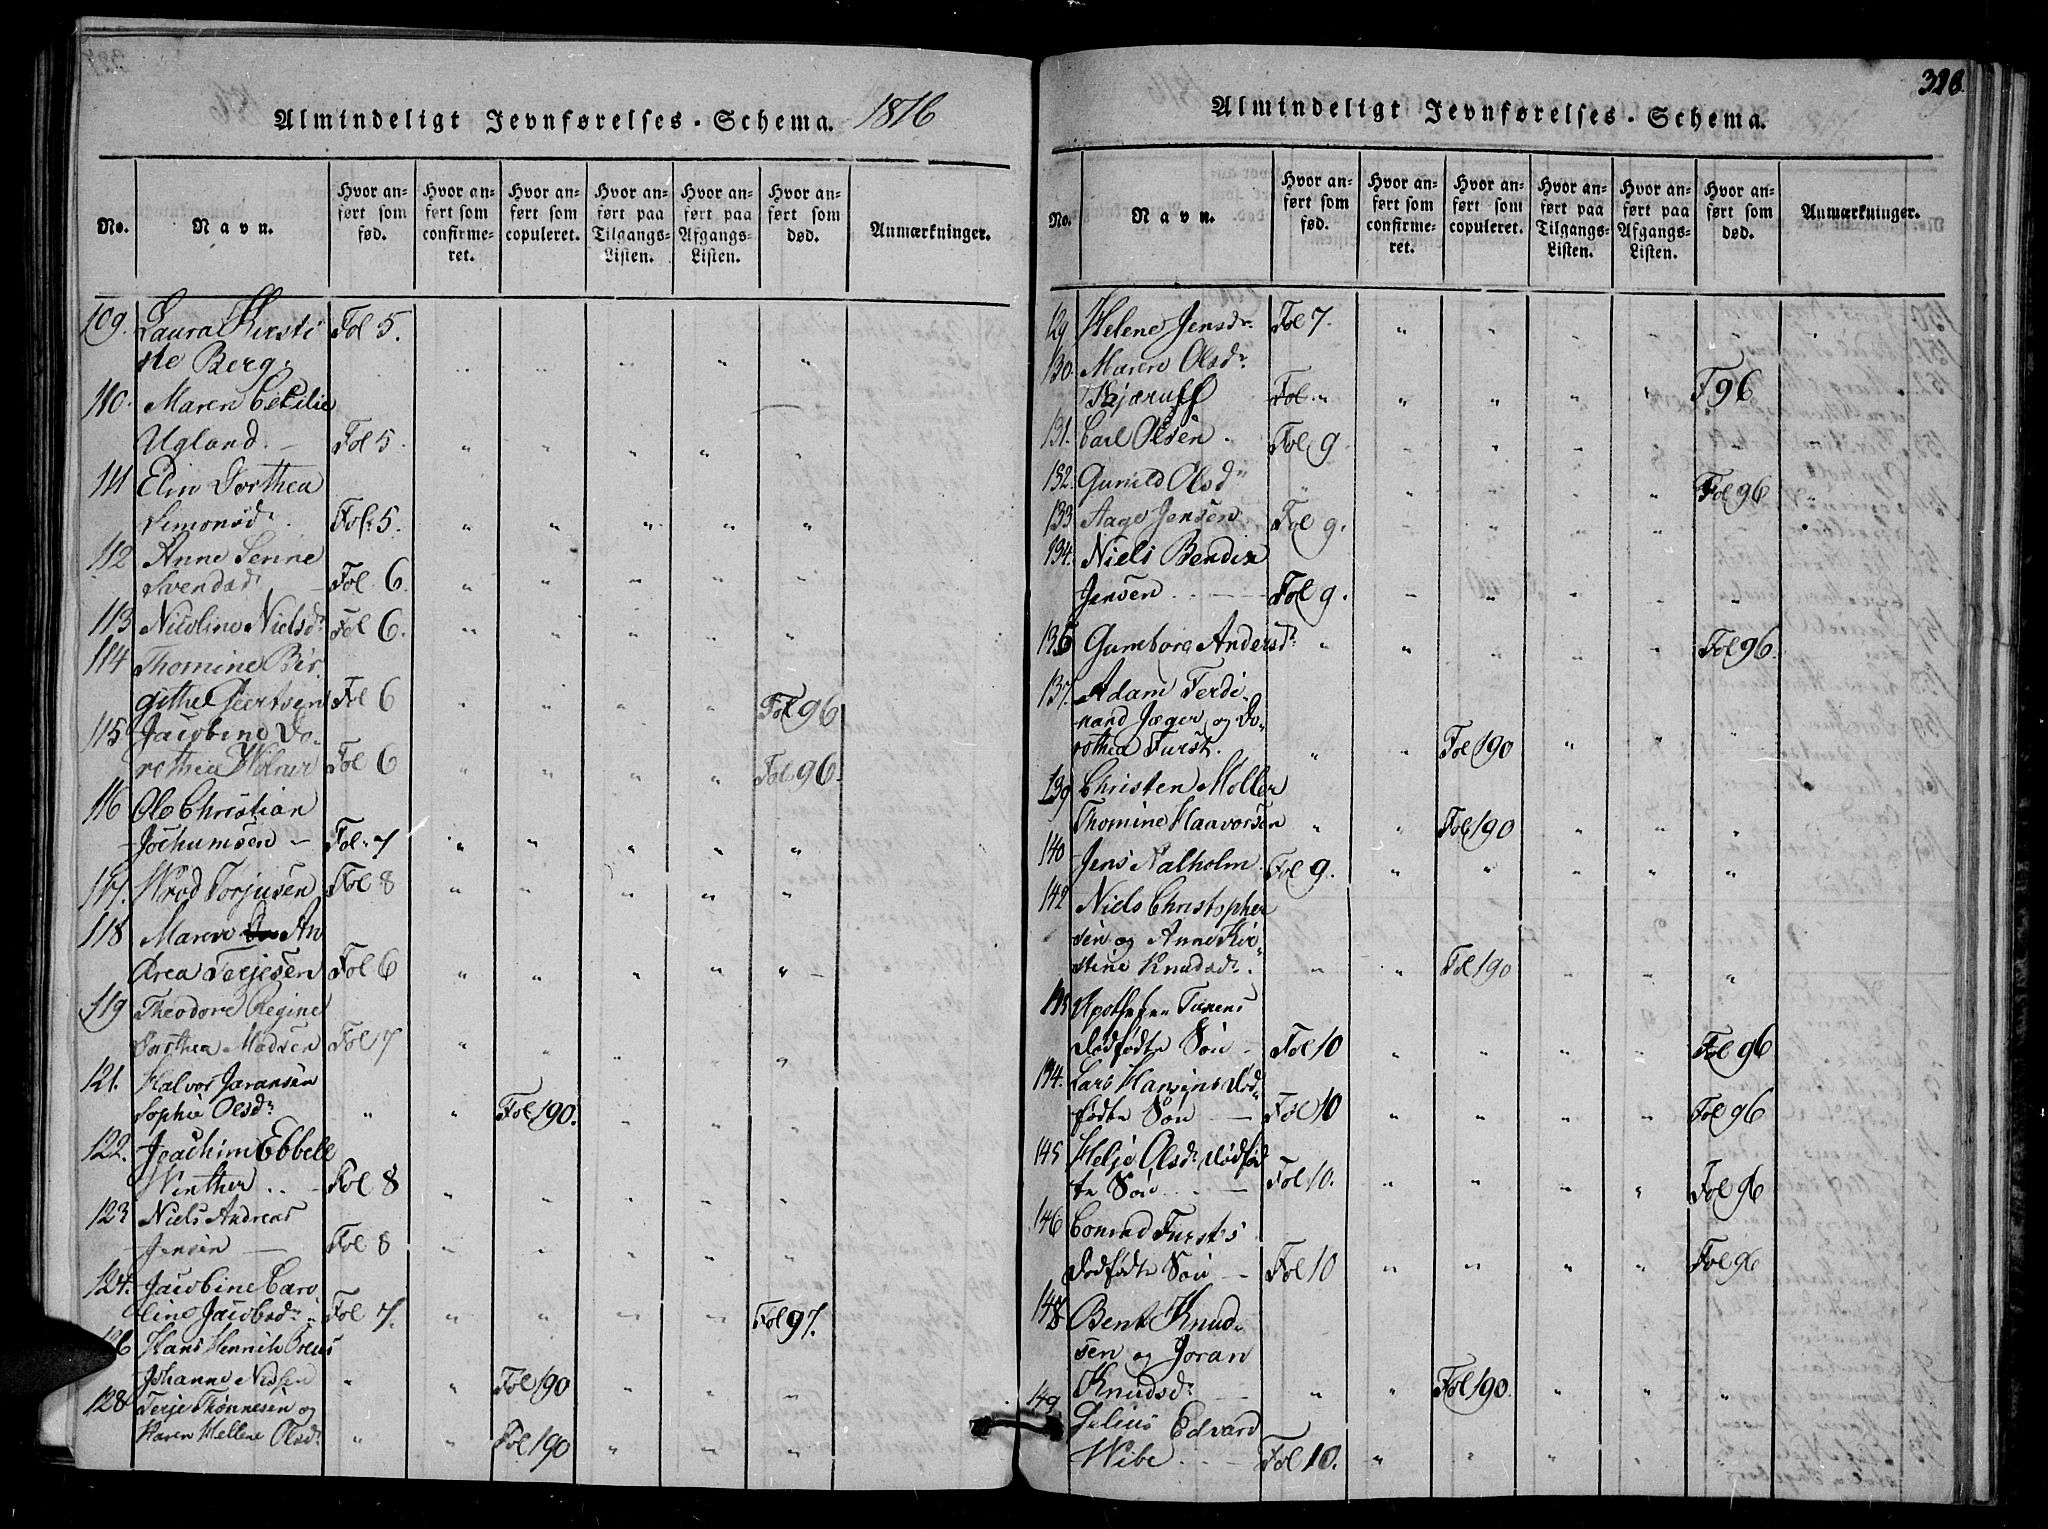 Almindeligt Jevnførelses-Schema. 1816
No. Navn. Hvor anført som fød. Hvor anført som confirmeret. Hvor anført som copuleret. Hvor anført paa Tilgangs-Listen. Hvor anført paa Afgangs-Listen. Hvor anført som død. Anmærkninger.
109. Laura Kirsti
ne Berg. Fol 5.
110. Maren Cecilie
Ugland. Fol 5.
111 Elin Dorthea
Simonsdr. Fol. 5.
112 Anne Serine
Svendsdr Fol. 6.
113 Nicoline Nielsdr Fol 6.
114 Thomine Bir
githe Geertsen Fol 6 Fol 96
115 Jacobine Do-
rothea Fol 6 Fol 96.
116 Ole Christian
Jochumsen Fol. 7
117. Wrod Torjusen Fol 8
118 Maren An
drea Terjesen Fol 6
119 Theodore Regine
Dorthea Madsen Fol 7
121. Halvor Jaransen
Sophie Olsdr Fol 190.
122. Joachim Ebbell
Winther Fol 8
123 Niels Andreas
Jensen Fol 8
124. Jacobine Caro
line Jacobsdr Fol 7. Fol 97.
126 Hans Henrich
Johanne Nilsen Fol 190
128 Terje Thønnesen og
Karen Hellene Olsdr Fol 190
328
Almindeligt Jevnførelses-Schema.
No. Navn. Hvor anført som fød. Hvor anført som confirmeret. Hvor anført som copuleret. Hvor anført paa Tilgangs-Listen. Hvor anført paa Afgangs-Listen. Hvor anført som død. Anmærkninger.
129 Helene Jensdr. Fol 7.
130. Maren Olsdr
Kjærulff Fol. F 96
131. Carl Olsen. Fol 9
132. Gunild Olsdr Fol 96
133 Aage Jensen Fol 9.
134. Niels Bendix
Jensen Fol 9.
136 Gumborg Andersdr Fol 96.
137. Adam Ferdi-
nand Jæger og Do-
rothea Furst. Fol 190
139 Christen Møller
Thomine Haavorsen Fol 190
140 Jens Nalholm Fol 9.
142 Niels Christopher
sen og Anne Kir
stine Knudsdr. Fol 190
143 Apotheker
Dødfødte Søn Fol 10 Fol 96
144. Lars Hansens Død
fødte Søn Fol 10 Fol 96
145 Helje Olsdr Dødfød
te Søn Fol 10. Fol 96
146 Conrad Furst's
Dødfødte Søn Fol 10 Fol 96
148 Bent Knud-
sen og Joran
Knudsdr Fol 190.
149 Julius Edvard
Wibe Fol 10.